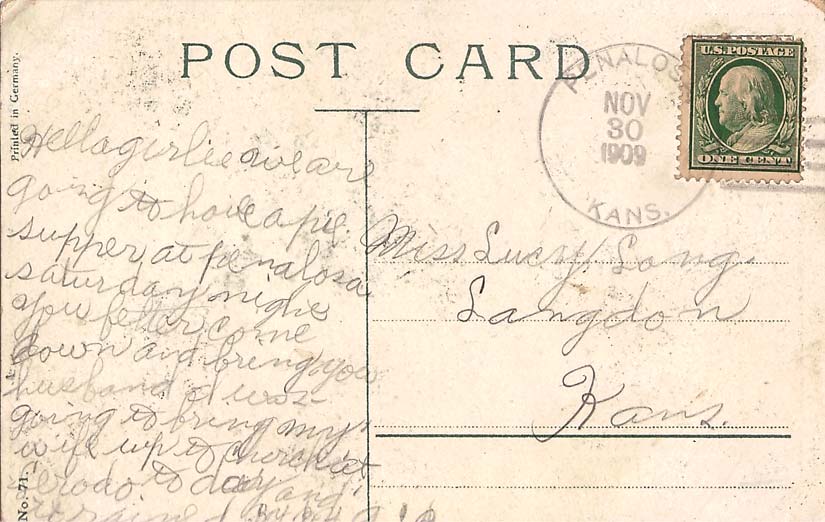 POST CARD
Printed in Germany.
No. 71.
PENALOS
NOV
30
1909
KANS.
U.S. POSTAGE
ONE CENT
Hello girlie we are
going to have a pie
supper at penalosa
saturday night
you better come
down and bring you
husband I was
going to bring my
wife up to
to day and
Miss Lucy Long.
Langdon
Kans.